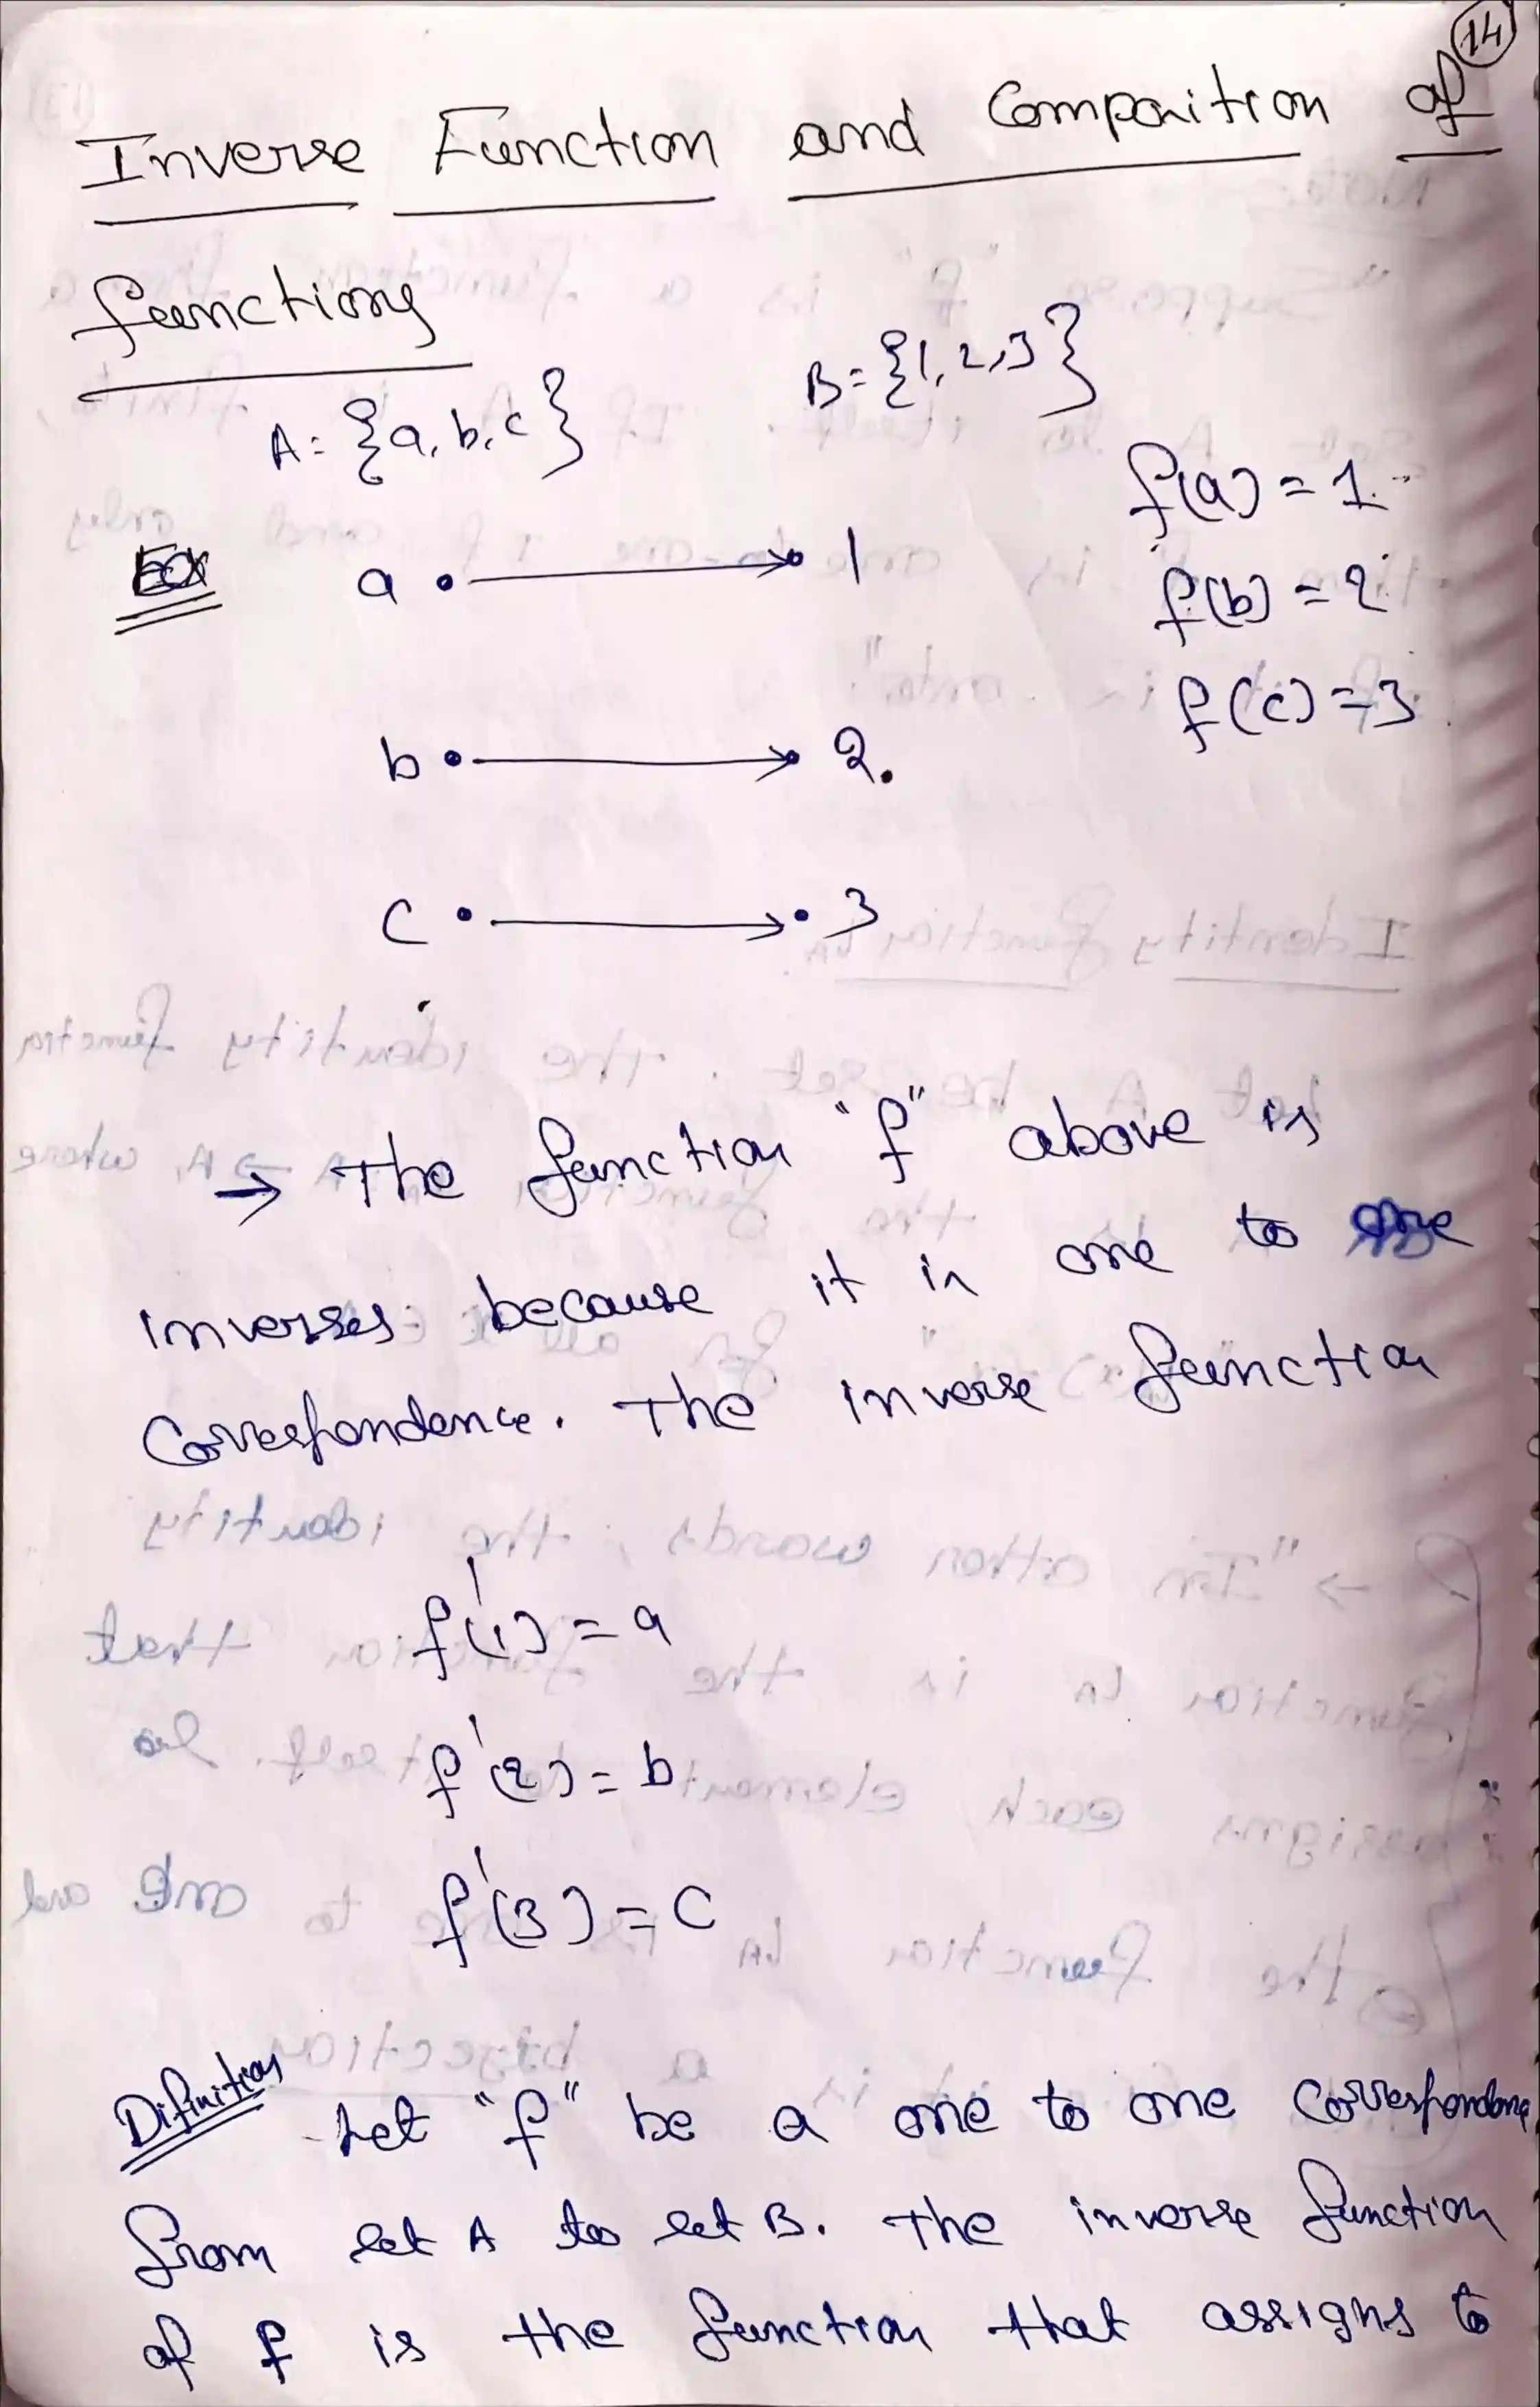 14
Inverse Function and Composition of
functions
A = {a, b, c} B = {1, 2, 3}
f(a) = 1
Ex a • → • 1
f(b) = 2
f(c) = 3
b • → • 2.
c • → • 3
→ The function "f" above is
inverses because it is one to one
Correspondence. The inverse function
f'(1) = a
f'(2) = b
f'(3) = c
Difinition Let "f" be a one to one Correspondence
from set A to set B. The inverse function
of f is the function that assigns to